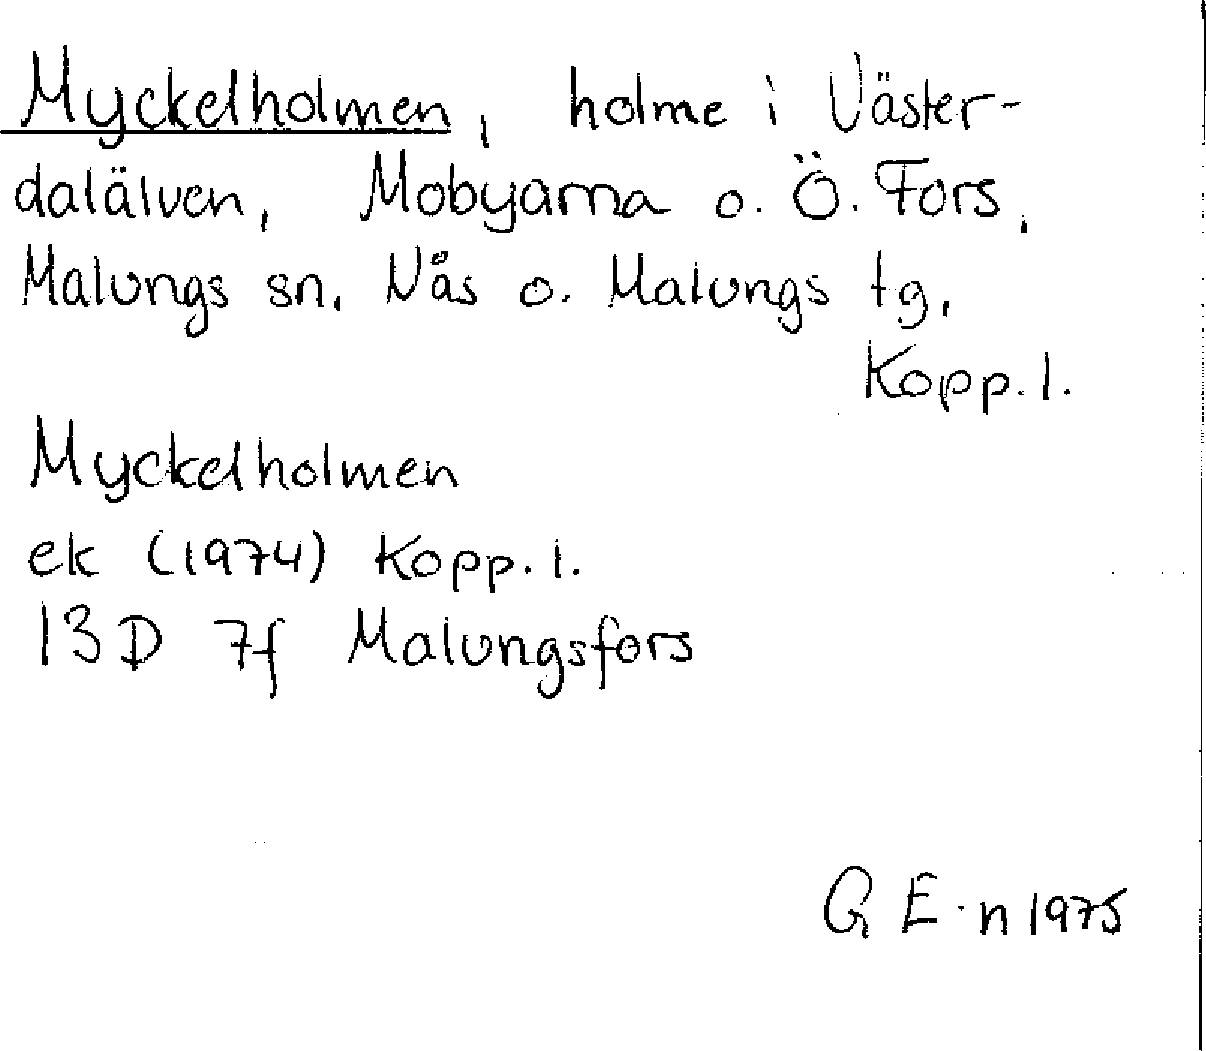 Myckelholmen, holme i Väster-
dalälven, Mobyarna o. Ö. Fors,
Malungs sn, Nås o. Malungs tg,
Kopp. l.
Myckelholmen
ek (1974) Kopp. l.
13D 7f Malungsfors
G E-n 1975